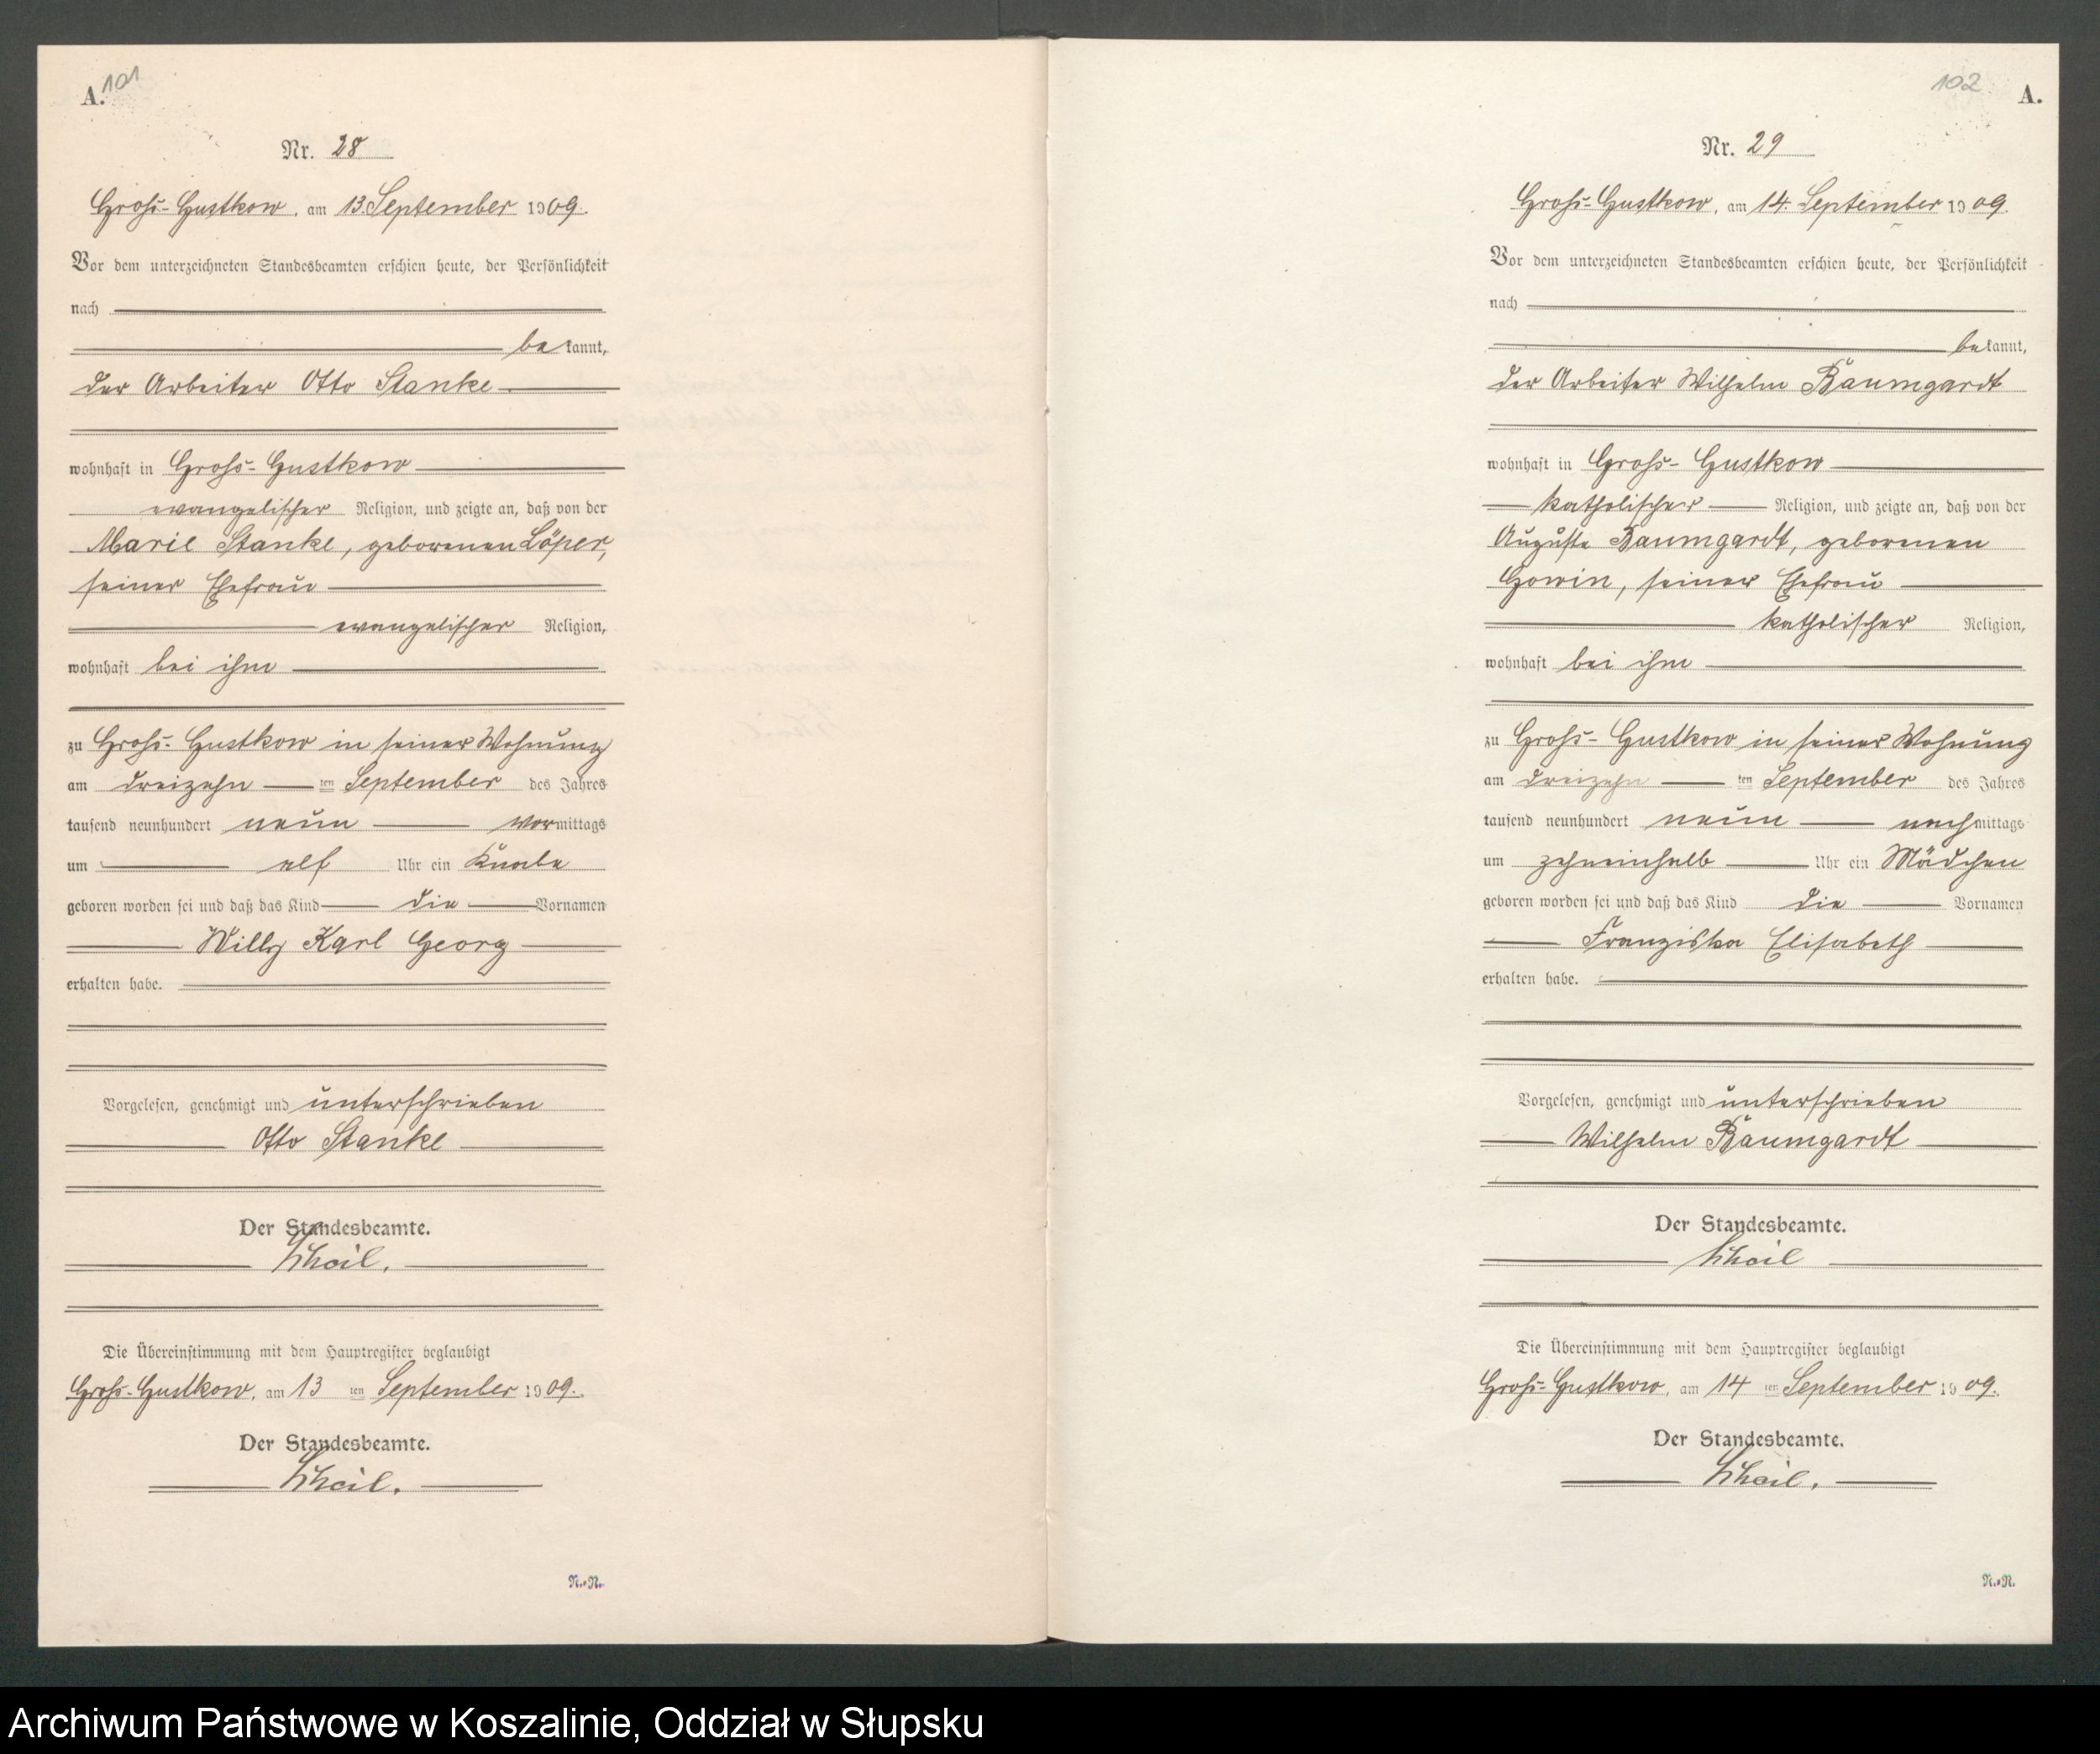 A. 101
Nr. 28
Groß-Gustkow, am 13. September 1909.
Vor dem unterzeichneten Standesbeamten erschien heute, der Persönlichkeit
nach
bekannt,
der Arbeiter Otto Stanke
wohnhaft in Groß-Gustkow
evangelischer Religion, und zeigte an, daß von der
Marie Stanke, geborenen Löper,
seiner Ehefrau
evangelischer Religion,
wohnhaft bei ihm
zu Groß-Gustkow in seiner Wohnung
am dreizehn ten September des Jahres
tausend neunhundert neun vormittags
um elf Uhr ein Knabe
geboren worden sei und daß das Kind die Vornamen
Willy Karl Georg
erhalten habe.
Vorgelesen, genehmigt und unterschrieben
Otto Stanke
Der Standesbeamte.
Die Übereinstimmung mit dem Hauptregister beglaubigt
Groß-Gustkow, am 13 ten September 1909.
Der Standesbeamte.
N.-N.
102 A.
Nr. 29
Groß-Gustkow, am 14. September 1909.
Vor dem unterzeichneten Standesbeamten erschien heute, der Persönlichkeit
nach
bekannt,
der Arbeiter Wilhelm Baumgardt
wohnhaft in Groß-Gustkow
katholischer Religion, und zeigte an, daß von der
Auguste Baumgardt, geborenen
Gowin, seiner Ehefrau
katholischer Religion,
wohnhaft bei ihm
zu Groß-Gustkow in seiner Wohnung
am dreizehn ten September des Jahres
tausend neunhundert neun nachmittags
um zehneinhalb Uhr ein Mädchen
geboren worden sei und daß das Kind die Vornamen
Franziska Elisabeth
erhalten habe.
Vorgelesen, genehmigt und unterschrieben
Wilhelm Baumgardt
Der Standesbeamte.
Die Übereinstimmung mit dem Hauptregister beglaubigt
Groß-Gustkow, am 14 ten September 1909.
Der Standesbeamte.
N.-N.
Archiwum Państwowe w Koszalinie, Oddział w Słupsku